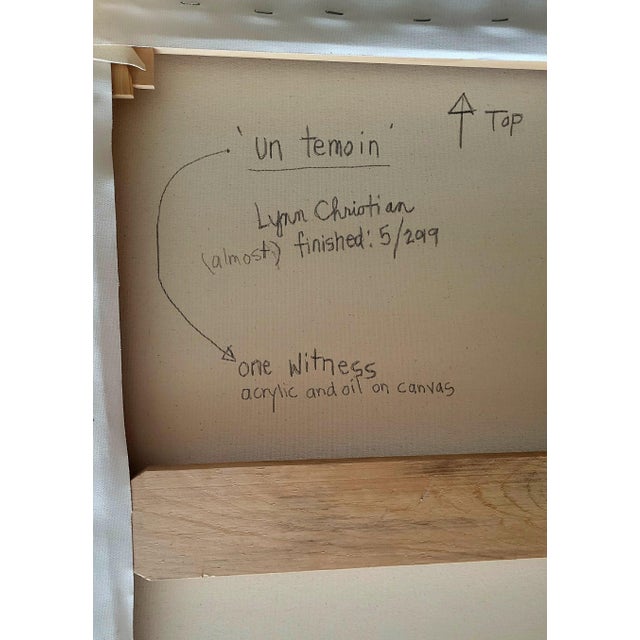 'un temoin'
↑ Top
Lynn Christian
(almost) finished: 5/2019
one witness
acrylic and oil on canvas